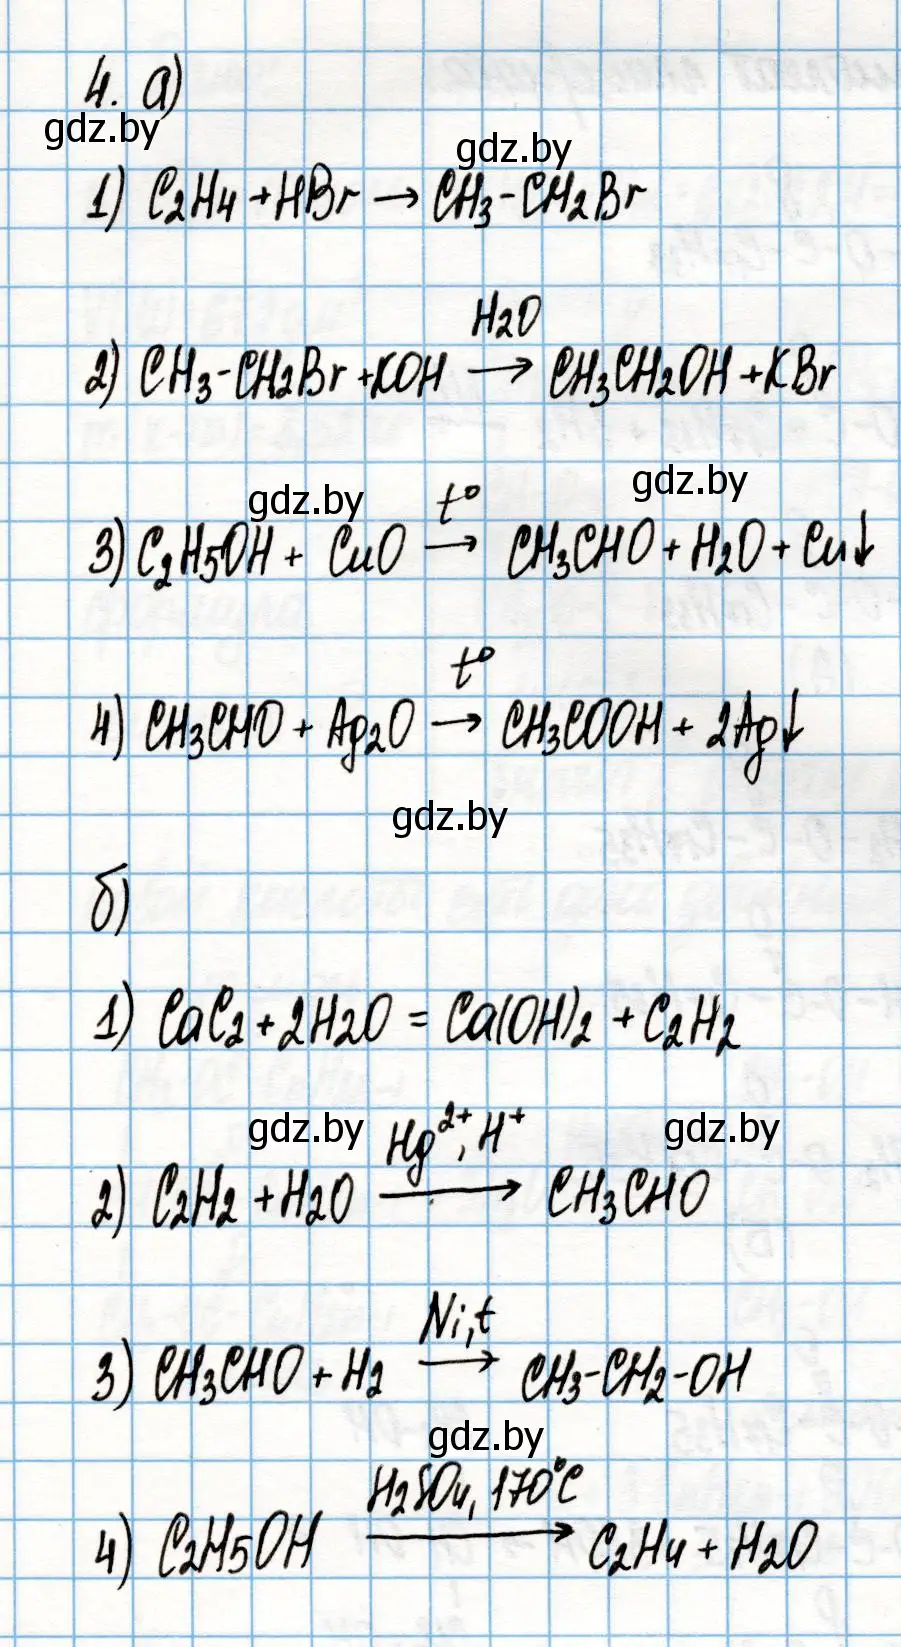 4. а)
gdz.by
gdz.by
1) C2H4 + HBr → CH3-CH2Br
H2O
2) CH3-CH2Br + KOH → CH3CH2OH + KBr
gdz.by
gdz.by
t°
3) C2H5OH + CuO → CH3CHO + H2O + Cu↓
t°
4) CH3CHO + Ag2O → CH3COOH + 2Ag↓
gdz.by
б)
1) CaC2 + 2H2O = Ca(OH)2 + C2H2
gdz.by
Hg2+, H+
gdz.by
2) C2H2 + H2O → CH3CHO
Ni, t
3) CH3CHO + H2 → CH3-CH2-OH
gdz.by
H2SO4, 170°C
4) C2H5OH → C2H4 + H2O